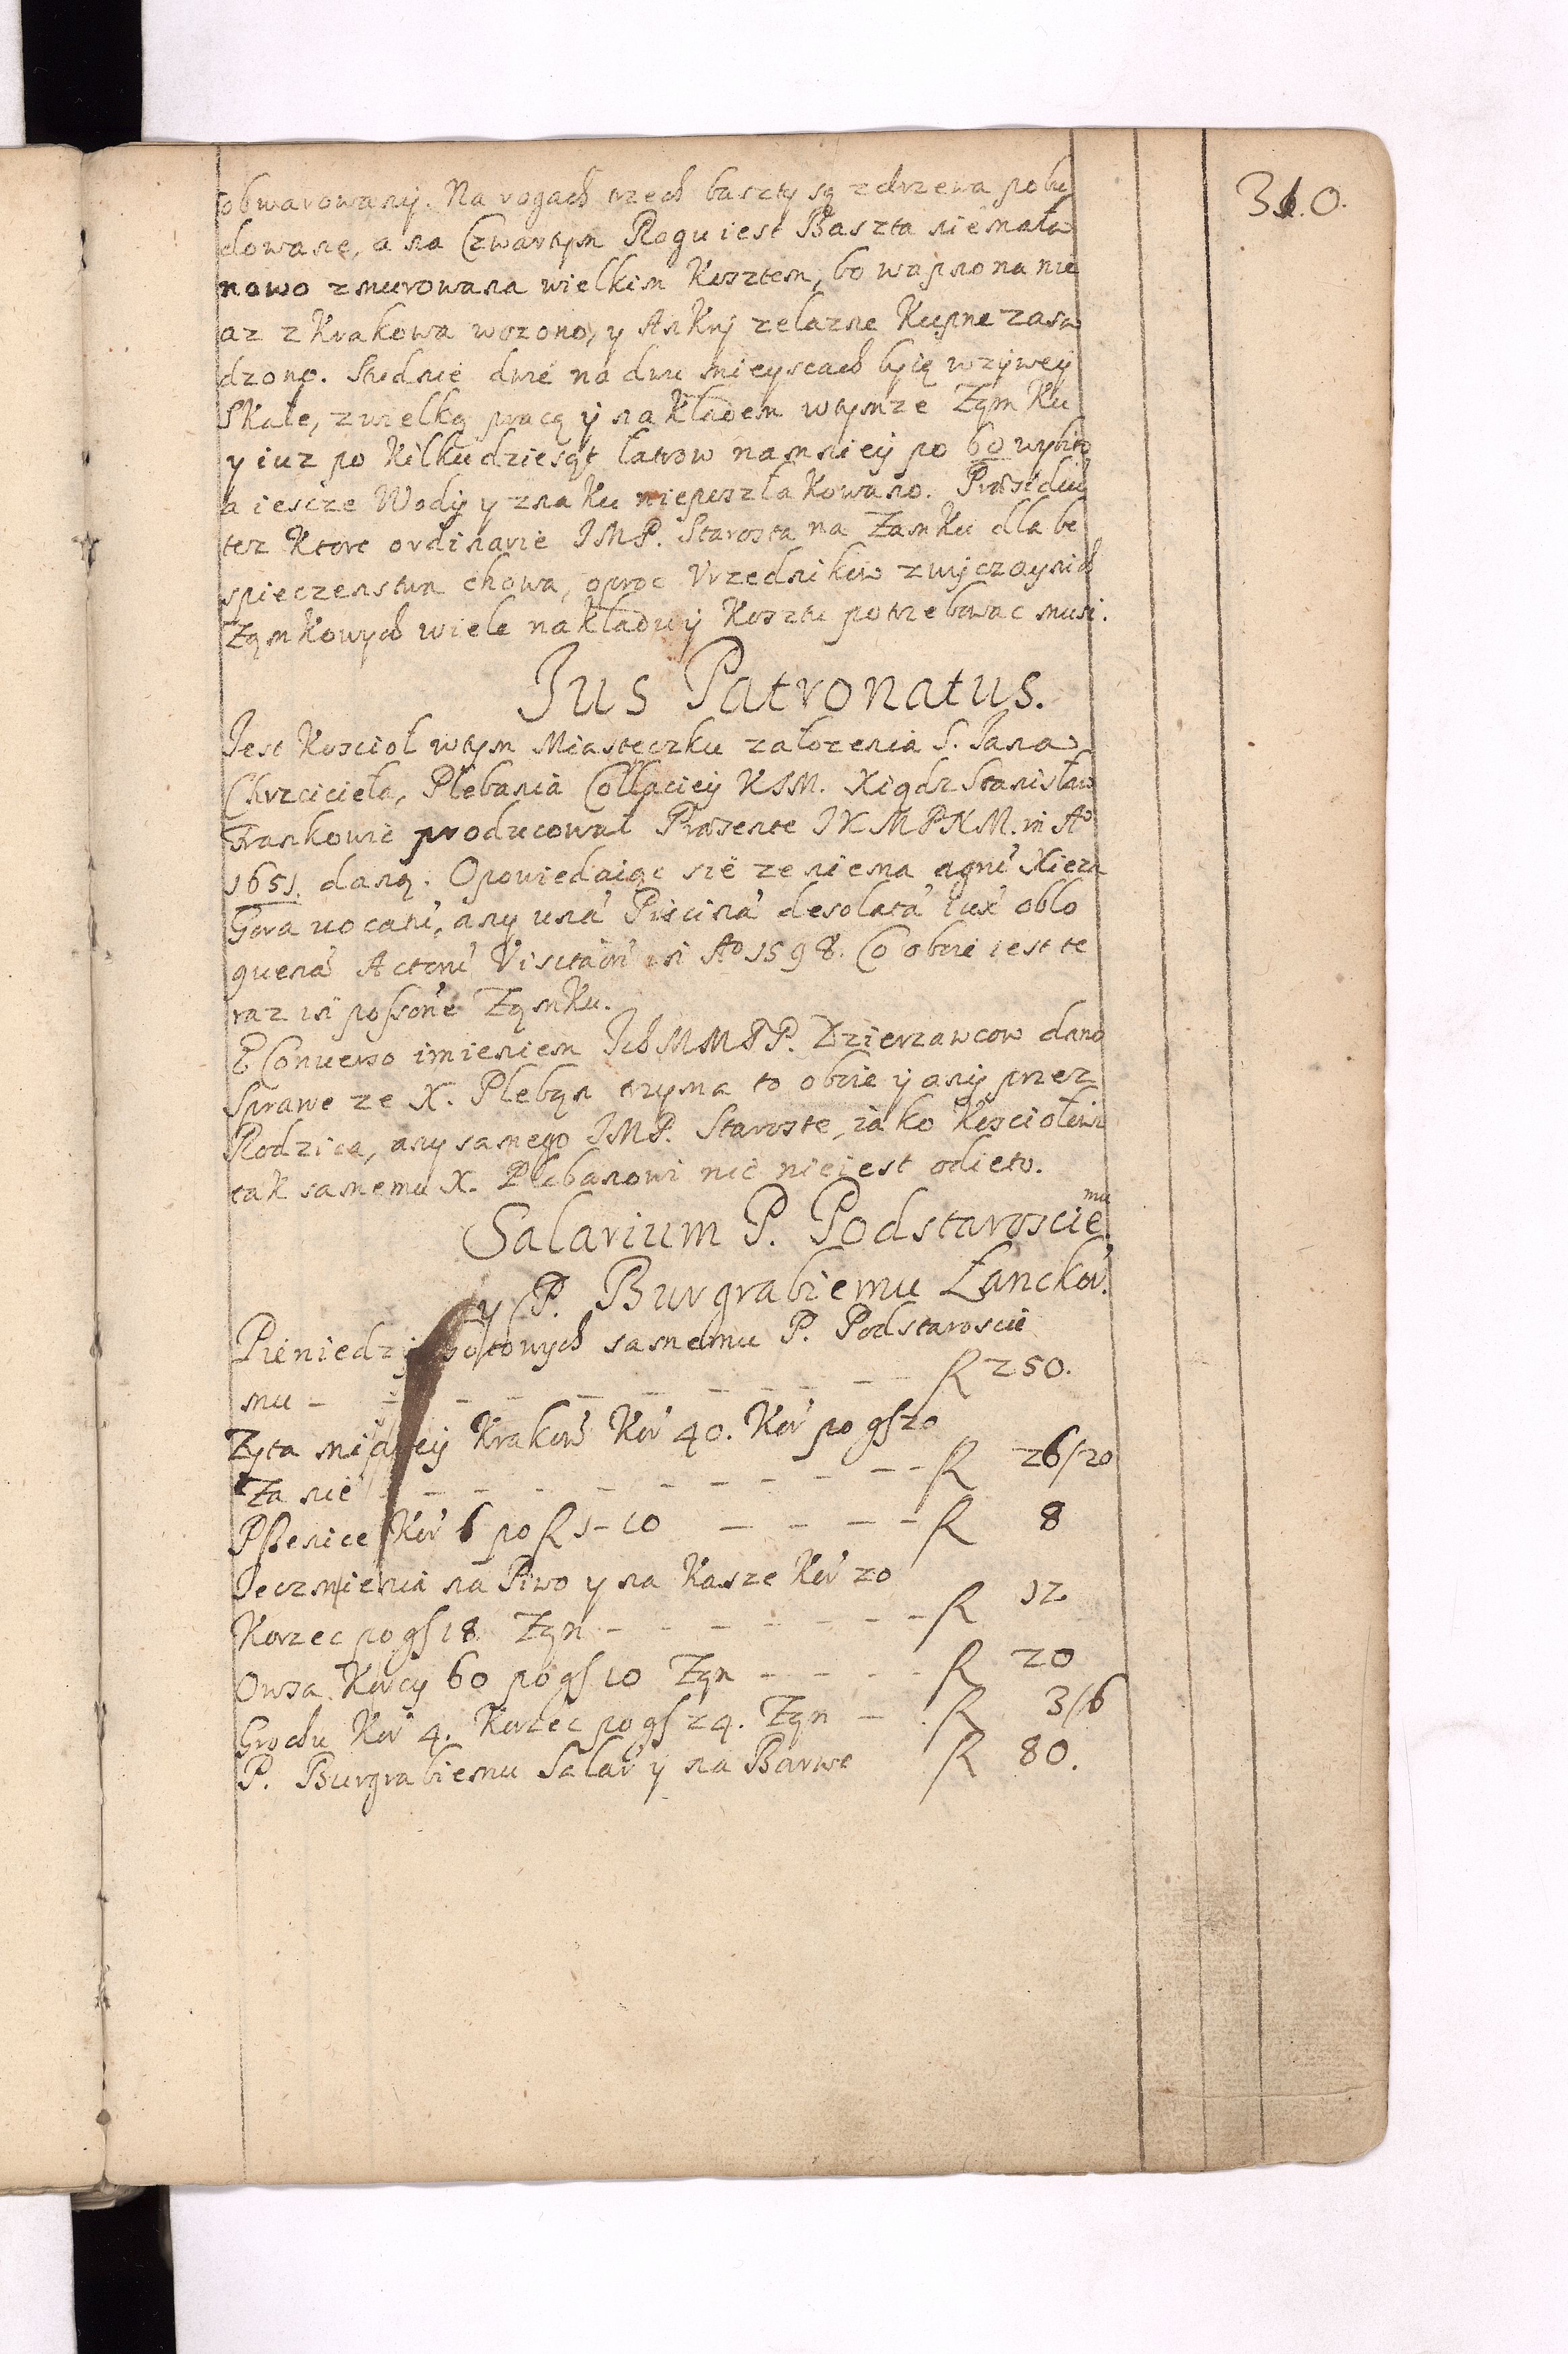 310.
obwarowany. Na rogach trzech baszty są z drzewa pobu
dowane, a na Czwartym Rogu iest Baszta niemała
nowo zmurowana wielkim Kosztem, bo wapno na nie
az z Krakowa wozono, y Ankry zelazne Kupne zasa
dzono. Studnie dwie na dwu mieyscach byię w zywey
Skale, z wielką pracą y nakładem w tymze Zamku
y iuz po Kilkudziesąt latrow namniey po 60 wybito
a iescze Wody y znaku nieposzlakowano. Præsidiu
tez Ktore ordinarie JMP. Starosta na Zamku dla be
spieczenstwa chowa, oproc Vrzednikow zwyczaynich
Zamkowych wiele nakładu y Kosztu potrzebowac musi.
Jus Patronatus.
Jest Kosciol w tym Miasteczku załozenia S. Jana
Chrzciciela, Plebania Collaciey KJM. Xiądz Stanisław
Frankowic producował Præsente JKMPNM. in Aº
1651. daną. Opowiedaiąc sie ze niema agru' Xieza
Gora uocatu', any una' Piscina' desolata' iux' oblo
quena' Actoru' Visitaōn' in Aº 1598. Co oboie iest te
raz in possone Zamku.
E Conuerso imieniem IchMMPP. Dzierzawcow dano
Sprawe ze X. Pleban trzyma to oboie y any przez
Rodzica, any samego JMP. Staroste, iako Kosciołowi
tak samemu X. Plebanowi nic nie iest odieto.
Salarium P. Podstaroscie mu
y P. Burgrabiemu Lanckor.
Pieniedzy gotowych samemu P. Podstaroscie
mu - - - - - - - - - - R 250.
Zyta miarey Krakow' Kor' 40. Kor' po gſ 20
Za nie - - - - - - - - - R 26/20
Pszenice Kor' 6 po R 1-10 - - - - R 8
Jeczmienia na Piwo y na Kasze Kor' 20
Korzec po gſ 18 Zan - - - - - - - R 12
Owsa Korcy 60 po gſ 10 Zan - - - - R 20
Grochu Kor' 4. Korzec po gſ 24. Zan - R 3/6
P. Burgrabiemu Salar' y na Barwe R 80.